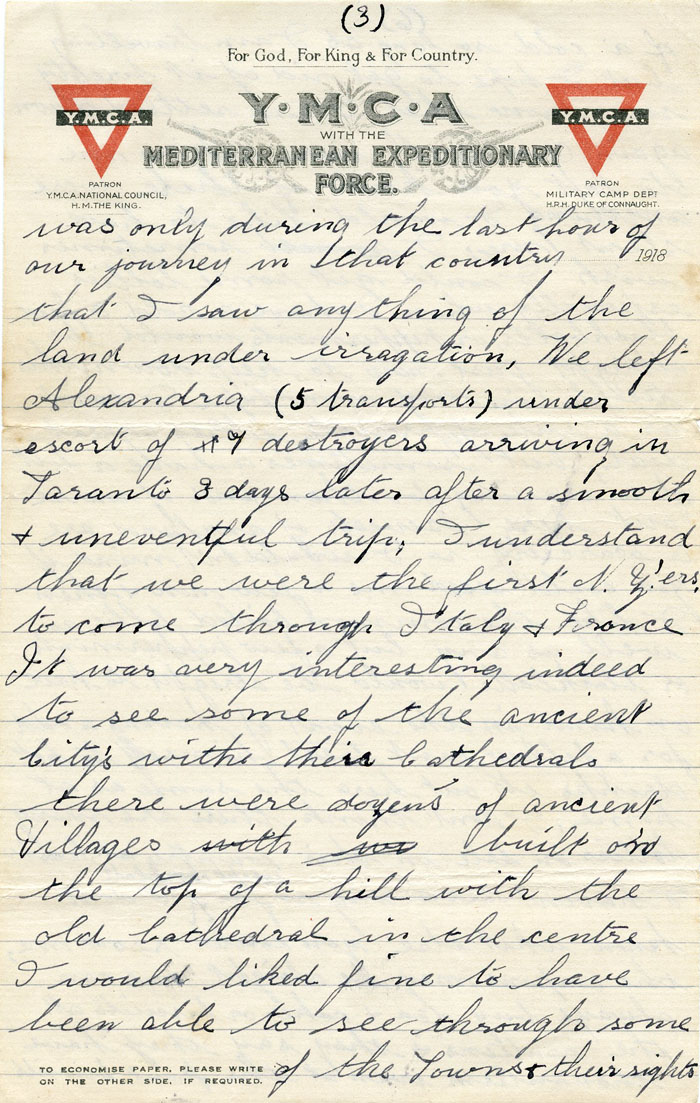 (3)
For God, For King & For Country.
Y·M·C·A
Y.M.C.A.
Y.M.C.A.
WITH THE
MEDITERRANEAN EXPEDITIONARY
FORCE.
PATRON
Y.M.C.A. NATIONAL COUNCIL,
H.M. THE KING.
PATRON
MILITARY CAMP DEPT
H.R.H. DUKE OF CONNAUGHT.
was only during the last hour of
our journey in that country 1918
that I saw anything of the
land under irragation, We left
Alexandria (5 transports) under
escort of 7 destroyers arriving in
Taranto 3 days later after a smooth
& uneventful trip, I understand
that we were the first N. Z'ers.
to come through Italy & France
It was very interesting indeed
to see some of the ancient
City's withe their Cathedrals
there were dozens of ancient
Villages with built on
the top of a hill with the
old Cathedral in the centre
I would liked fine to have
been able to see through some
of the Towns & their sights
TO ECONOMISE PAPER, PLEASE WRITE
ON THE OTHER SIDE, IF REQUIRED.